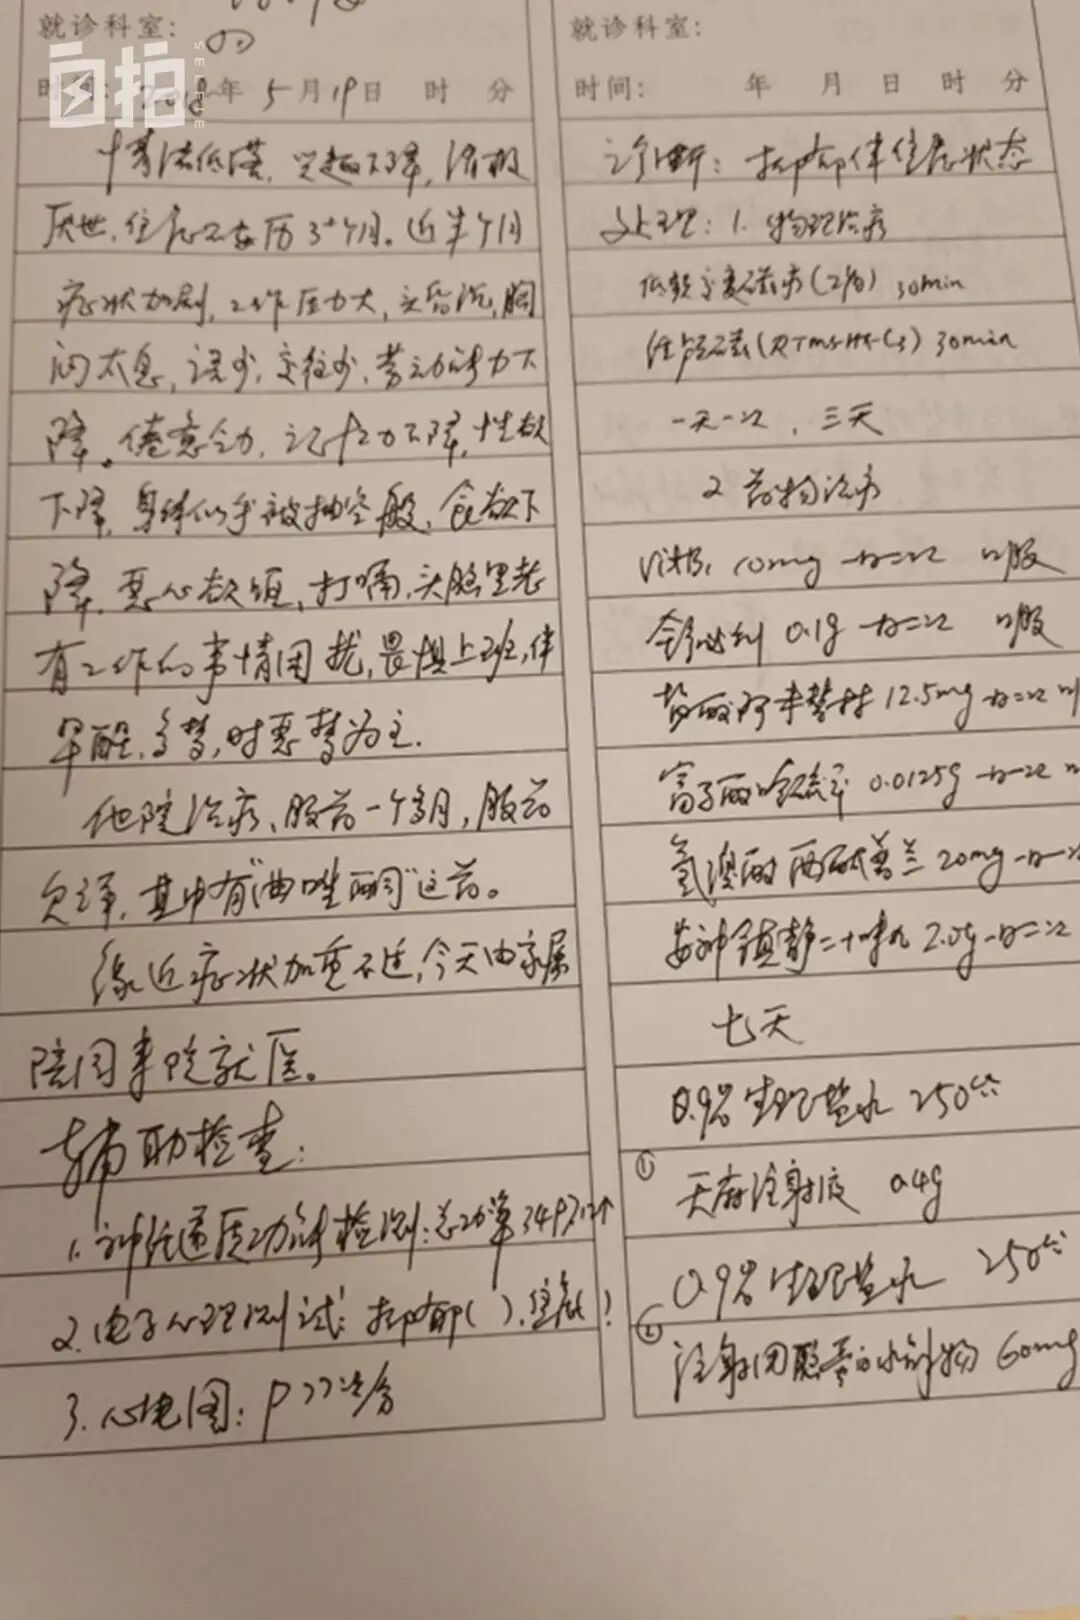 就诊科室:
时间: 2018年 5月19日 时 分
情绪低落，兴趣下降，消极
厌世，焦虑不安历3+个月。近半个月
症状加剧，工作压力大，头昏沉，胸
闷太息，语少，交往少，劳动能力下
降。倦怠乏力，记忆力下降，性欲
下降，身体似乎被抽空般，食欲下
降，恶心欲呕，打嗝，头脑里老
有工作的事情困扰，畏惧上班，伴
早醒，多梦，时恶梦为主.
他院治疗，服药一个多月，服药
欠详，其中有"曲唑酮"这药。
缘近症状加重不适，今天由家属
陪同来院就医。
辅助检查:
1. 神经递质功能检测:总功率349↑
2. 电子心理测试: 抑郁( ), 焦虑( )
3. 心电图: P 77次/分
就诊科室:
时间: 年 月 日 时 分
诊断: 抑郁伴焦虑状态
处理: 1. 物理治疗
低频交变磁疗(2部) 30min
经颅磁(RTMS) 30min
一天一次，三天
2 药物治疗
VitB1 10mg 一日二次 口服
舒必利 0.1g 一日二次 口服
盐酸阿米替林 12.5mg 一日二次
富马酸喹硫平 0.0125g 一日一次
氢溴酸西酞普兰 20mg 一日一次
安神镇静二十味丸 2.0g 一日二次
七天
0.9%生理盐水 250
① 天麻注射液 0.4g
0.9%生理盐水 250
② 注射用脑蛋白水解物 60mg
自拍
SELFIE